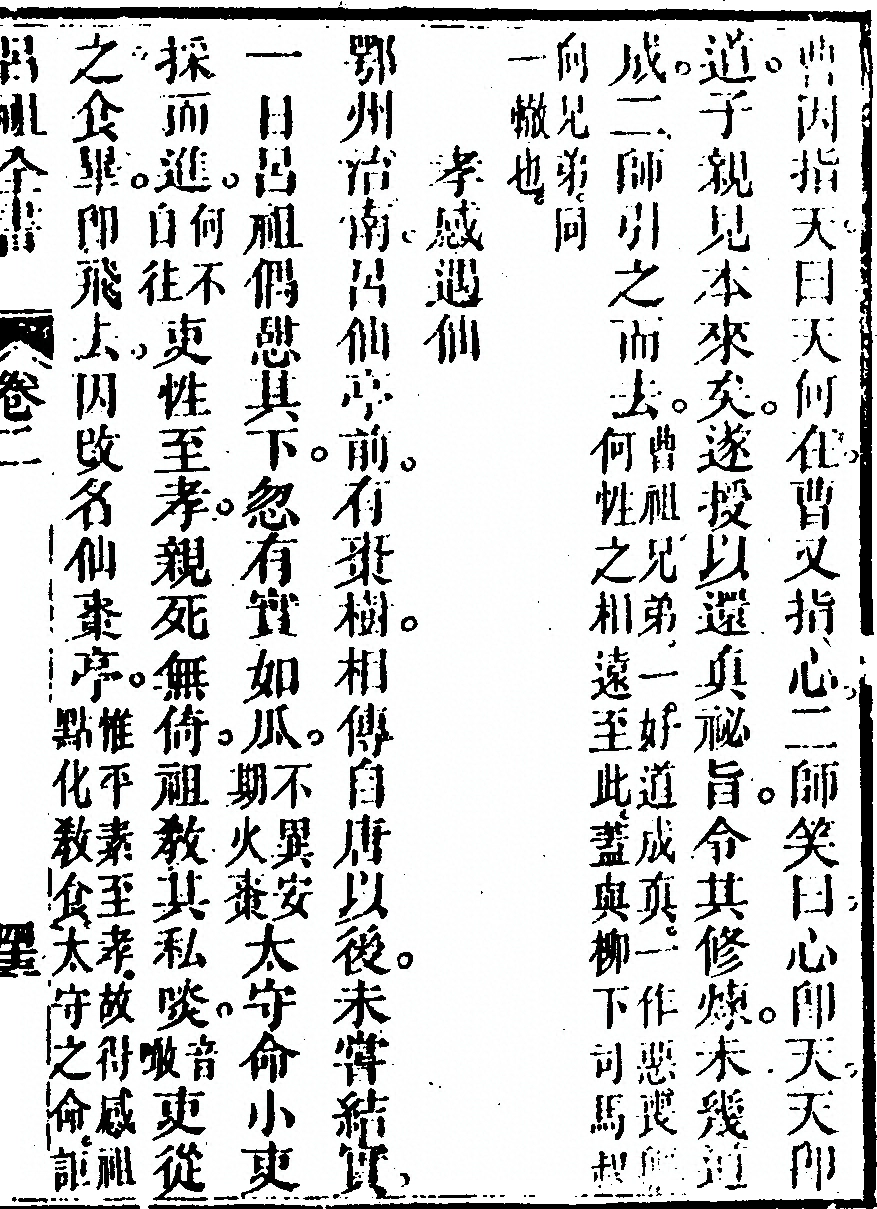 曹因指天曰天何在曹又指心二師笑曰心即天天即
道子親見本來矣遂授以還眞祕旨令其修煉未幾道
成二師引之而去曹祖兄弟一好道成眞一作惡喪
何性之相遠至此蓋與柳下司馬
向兄弟同
一轍也
孝感遇仙
鄂州治南呂仙亭前有棗樹相傳自唐以後未嘗結實
一日呂祖偶憇其下忽有實如瓜不異安
期火棗太守命小吏
採而進何不
自往吏性至孝親死無倚祖敎其私啖音
噉吏從
之食畢卽飛去因改名仙棗亭惟平素至孝故得感祖
點化敎食太守之命詎
呂祖全書 卷二